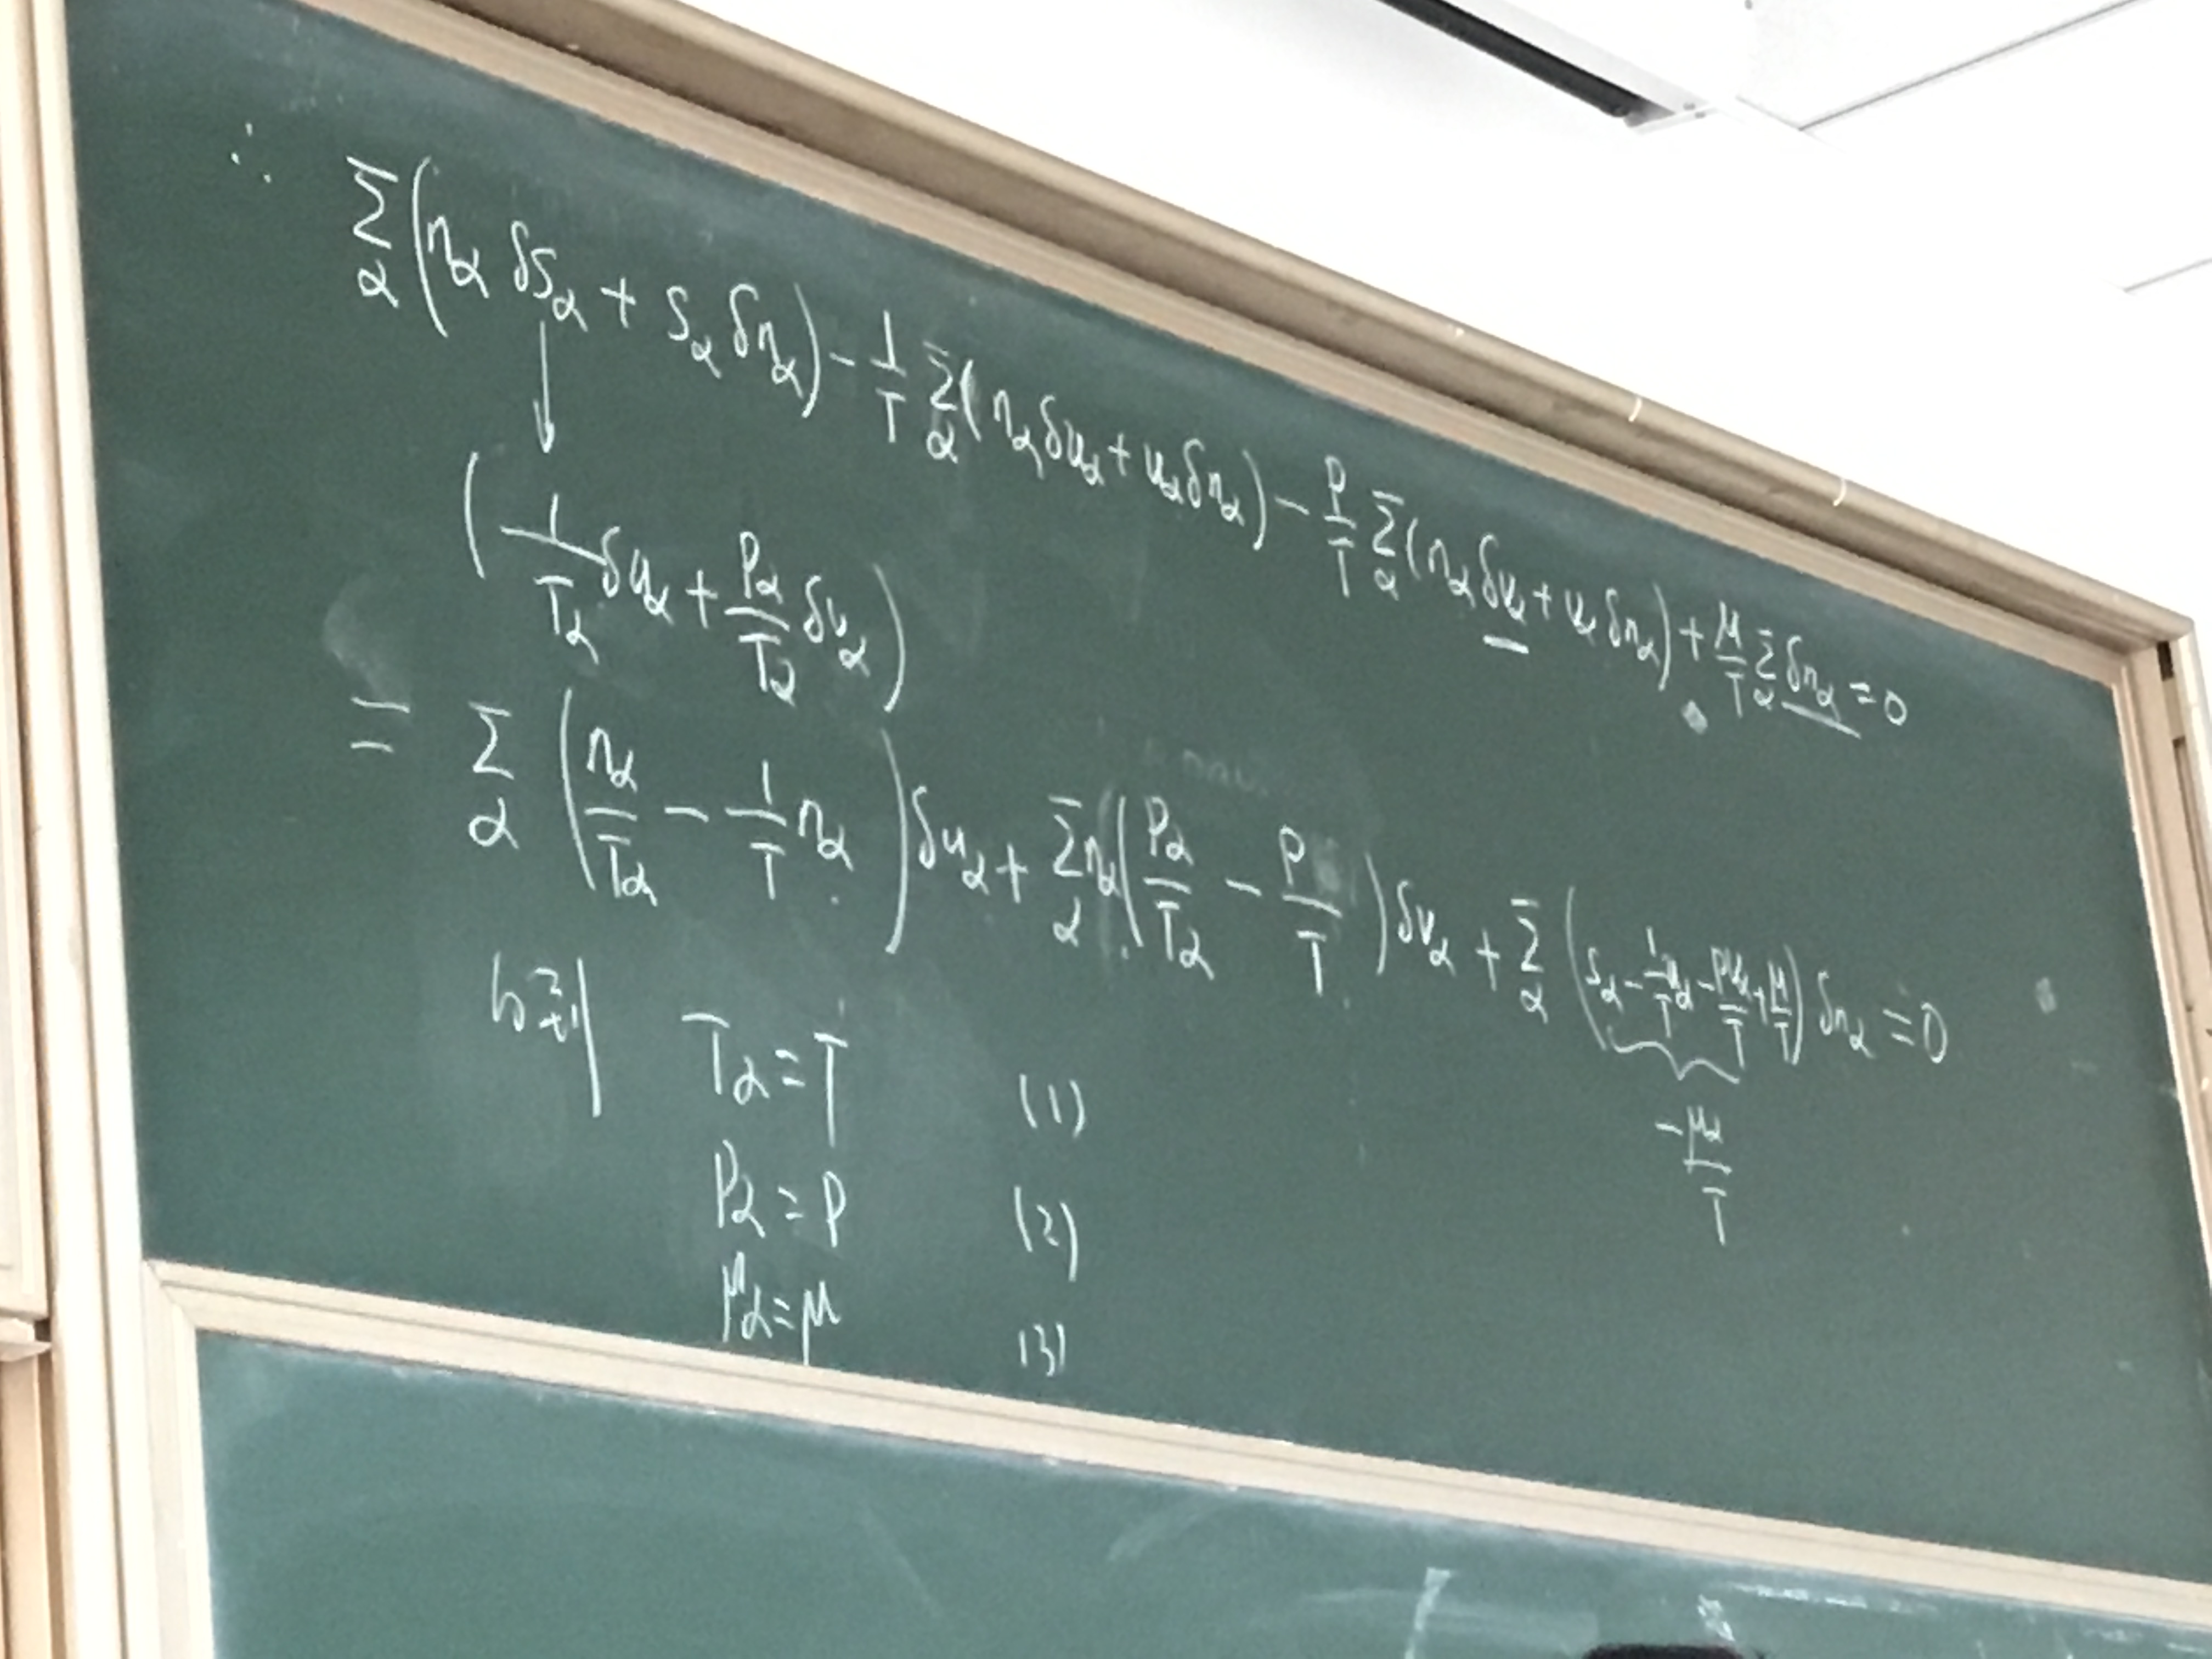 ∴ Σ_α (n_α δs_α + s_α δn_α) − 1/T Σ_α (n_α δu_α + u_α δn_α) − P/T Σ_α (n_α δv_α + v_α δn_α) + μ/T Σ_α δn_α = 0
↓
(1/T_α δu_α + P_α/T_α δv_α)
= Σ_α (n_α/T_α − 1/T n_α) δu_α + Σ_α n_α (P_α/T_α − P/T) δv_α + Σ_α (s_α − 1/T u_α − Pv_α/T + μ/T) δn_α = 0
−μ_α/T
T_α = T (1)
P_α = P (2)
μ_α = μ (3)